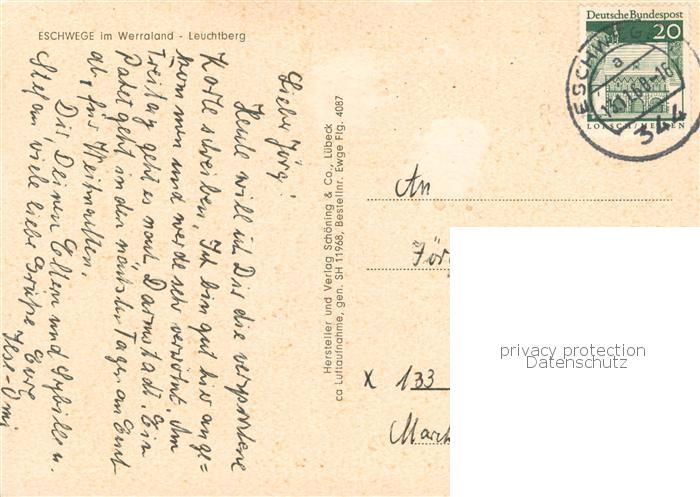 ESCHWEGE im Werraland - Leuchtberg
Liebe Jörg!
Heute will ich Dir die versprochene
Karte schreiben. Ich bin gut hier ange=
kommen und werde sehr verwöhnt. Am
Freitag geht es nach Darmstadt. Ein
Paket geht in den nächsten Tagen an Euch
ab, fürs Weihnachten.
Dir, Deinen Eltern und Sybille u.
Stefan viele liebe Grüße Eure
Ilse-Omi
Hersteller und Verlag Schöning & Co., Lübeck
ca Luftaufnahme, gen. SH 11968, Bestellnr. Ewge Flg. 4087
Deutsche Bundespost
20
LORSCH/HESSEN
ESCHWEGE
a
344
An
Jör
x 133
privacy protection
Datenschutz